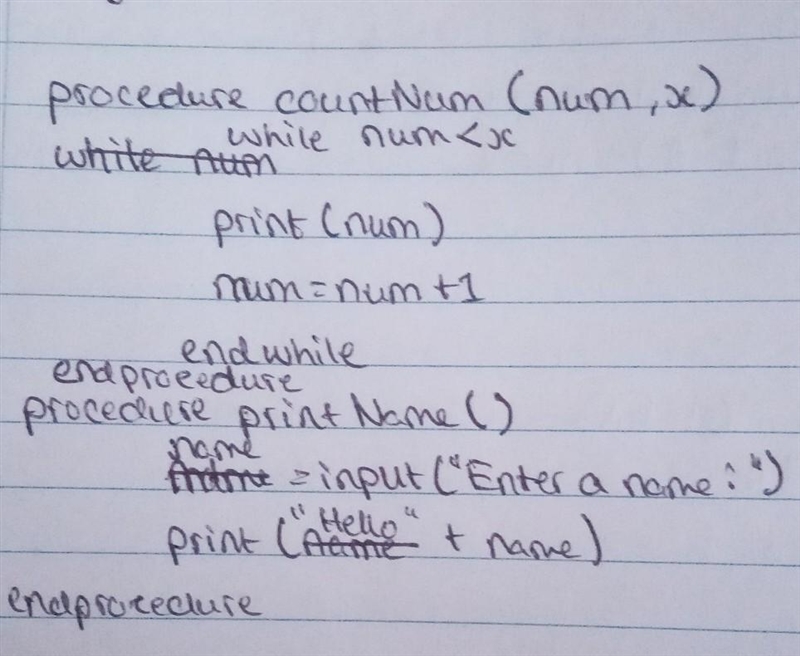 procedure countNum (num, x)
while num<x
while num
print (num)
num = num + 1
endwhile
endprocedure
procedure printName ()
name
= input ("Enter a name: ")
"Hello"
print (name + name)
endprocedure